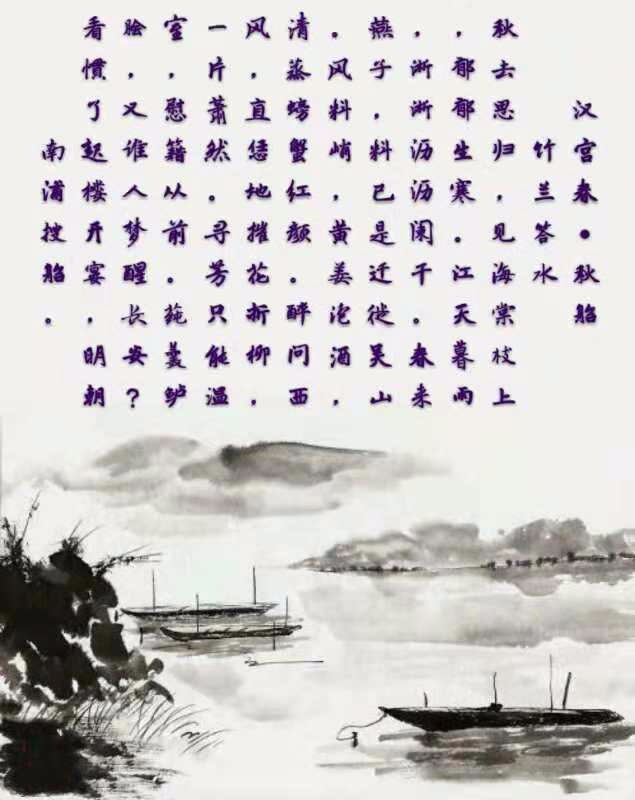 汉宫春•秋船
竹兰答水
秋去思归，见海棠枝上
，郁郁生寒。江天暮雨
，淅淅沥沥阑干。春来
燕子，料已是迁徙吴山
。风料峭，黄姜泡酒，
清蒸螃蟹红颜。醉问西
风，直恁地摧花折柳，
一片萧然。寻芳只能温
室，慰籍从前。莼羹鲈
脍，又谁人梦醒长安？
看惯了起楼开宴，明朝
南浦搜船。